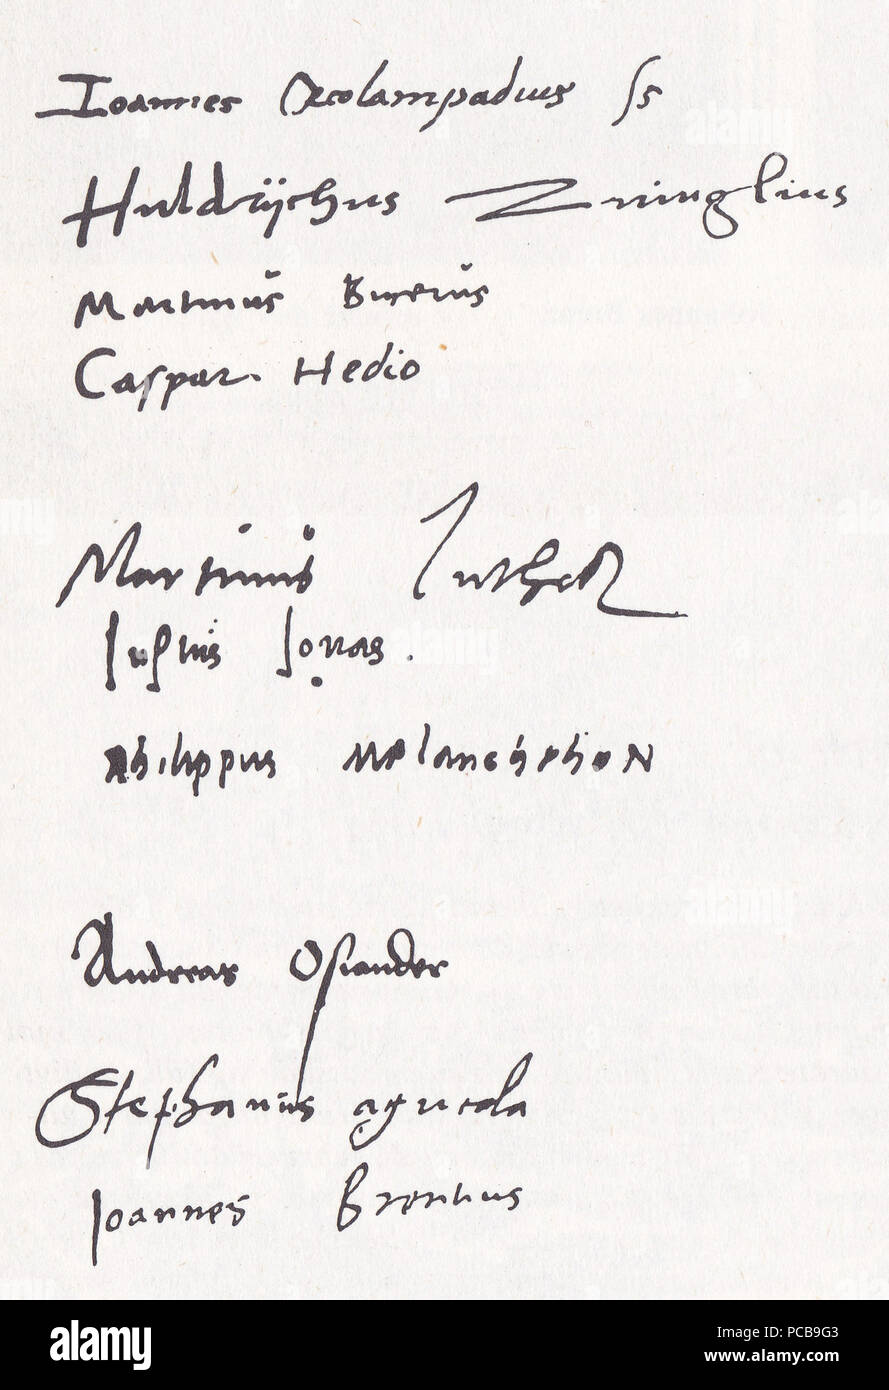 Ioannes Œcolampadius ss
Huldrÿchus Zuinglius
Martinus Bucerus
Caspar Hedio
Martinus Luther
Justus Jonas.
Philippus Melanchthon
Andreas Osiander
Stephanus agricola
Ioannes Brentius
alamy
Image ID: PCB9G3
www.alamy.com